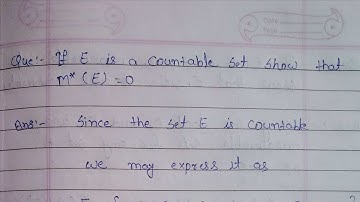 Que:- If E is a Countable set show that
m* (E) = 0
Ans:- Since the set E is Countable
we may express it as